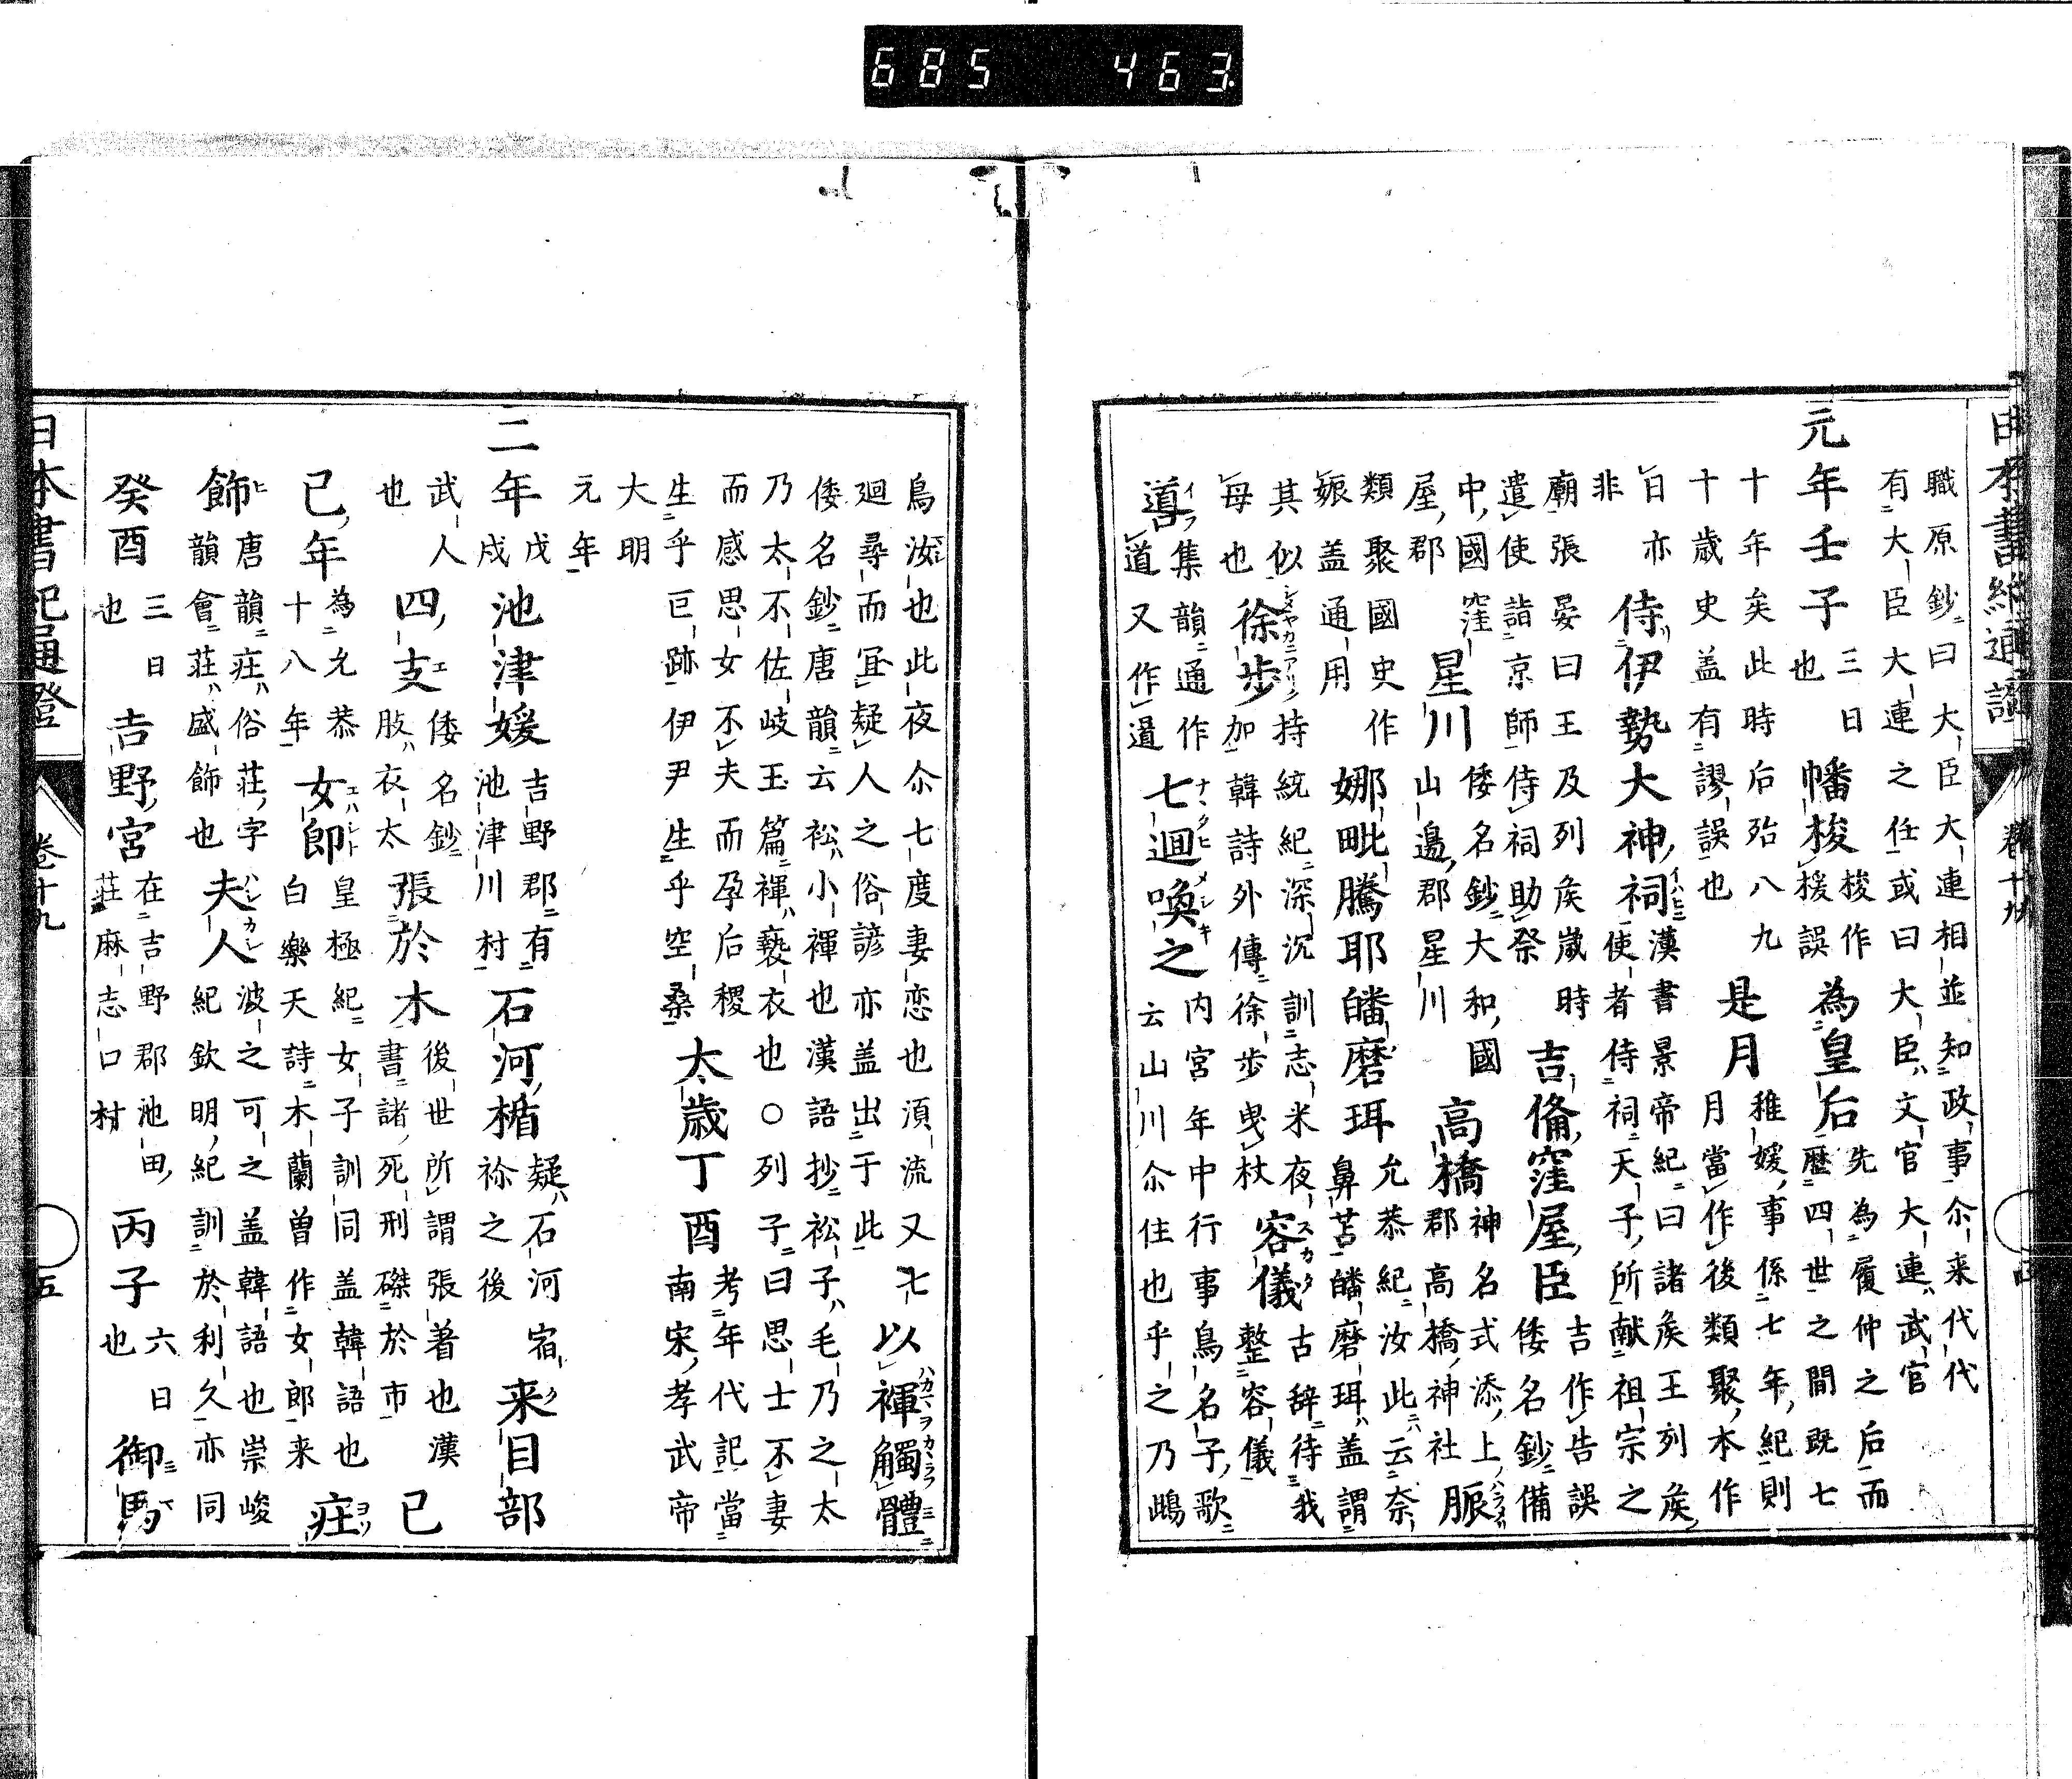 日本書紀通證 卷十九 四
職原鈔曰大臣大連相並知政事尒来代代
有大臣大連之任或曰大臣文官大連武官
元年壬子 三日也 幡梭 梭作楥誤 為皇后 先為履仲之后而歷四世之間既七
十年矣此時后殆八九十歲史盖有謬誤也 是月 稚媛事係七年紀則月當作後類聚本作
日亦非 侍伊勢大神祠 漢書景帝紀曰諸侯王列侯使者侍祠天子所献祖宗之
廟張晏曰王及列侯歲時遣使詣京師侍祠助祭 吉俻窪屋臣 吉作告誤倭名鈔備
中國窪屋郡 星川 倭名鈔大和國山邊郡星川 高橋 神名式添上郡高橋神社 脤
類聚國史作娠盖通用 娜毗騰耶皤磨珥 允恭紀汝此云奈鼻苫皤磨珥盖謂
其似每也 徐步 持統紀深沉訓志米夜加韓詩外傳徐步曳杖 容儀 古辞待我整容儀
導 集韻通作道又作噵 七廻喚之 内宮年中行事鳥名子歌云山川尒住也乎之乃鴟
鳥汝也此夜尒七度妻恋也湏流又七廻尋而冝疑人之俗諺亦盖出于此 以褌觸體
倭名鈔唐韻云衳小褌也漢語抄衳子毛乃之太
乃太不佐岐玉篇褌褻衣也○列子曰思士不妻
而感思女不夫而孕后稷生乎巨跡伊尹生乎空桑 太歳丁酉 考年代記當南宋孝武帝
大明元年
二年 戊戌 池津媛 吉野郡有池津川村 石河楯 疑石河宿祢之後 来目部
武人也 四支 倭名鈔肢衣太 張於木 後世所謂張着也漢書諸死刑磔於市 已
已年 為允恭十八年 女郎 皇極紀女子訓同盖韓語也白樂天詩木蘭曽作女郎来 莊
飾 唐韻疰俗莊字韻會莊盛飾也 夫人 波之可之盖韓語也崇峻紀欽明紀訓於利久亦同
癸酉 三日也 吉野宮 在吉野郡池田莊麻志口村 丙子 六日也 御馬
日本書紀通證 卷十九 五
685 463